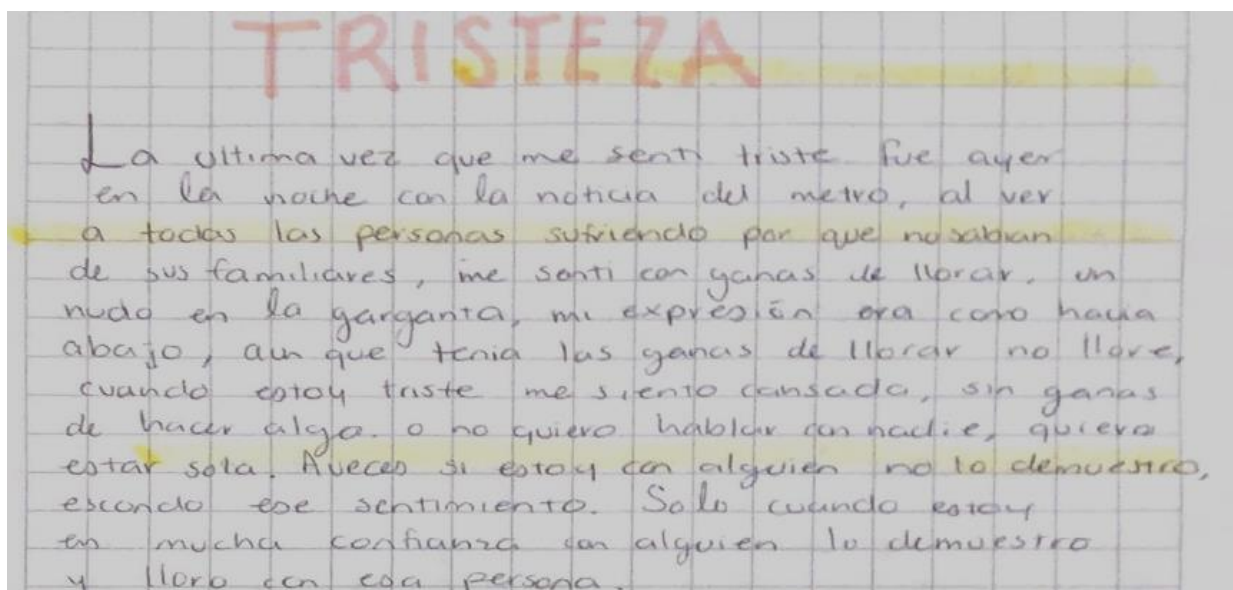 TRISTEZA
La ultima vez que me senti triste fue ayer
en la noche con la noticia del metro, al ver
a todas las personas sufriendo por que no sabian
de sus familiares, me senti con ganas de llorar, un
nudo en la garganta, mi expresión era como hacia
abajo, aun que tenia las ganas de llorar no llore,
cuando estoy triste me siento cansada, sin ganas
de hacer algo. o no quiero hablar con nadie, quiero
estar sola. Aveces si estoy con alguien no lo demuestro,
escondo ese sentimiento. Solo cuando estoy
en mucha confianza con alguien lo demuestro
y lloro con esa persona.